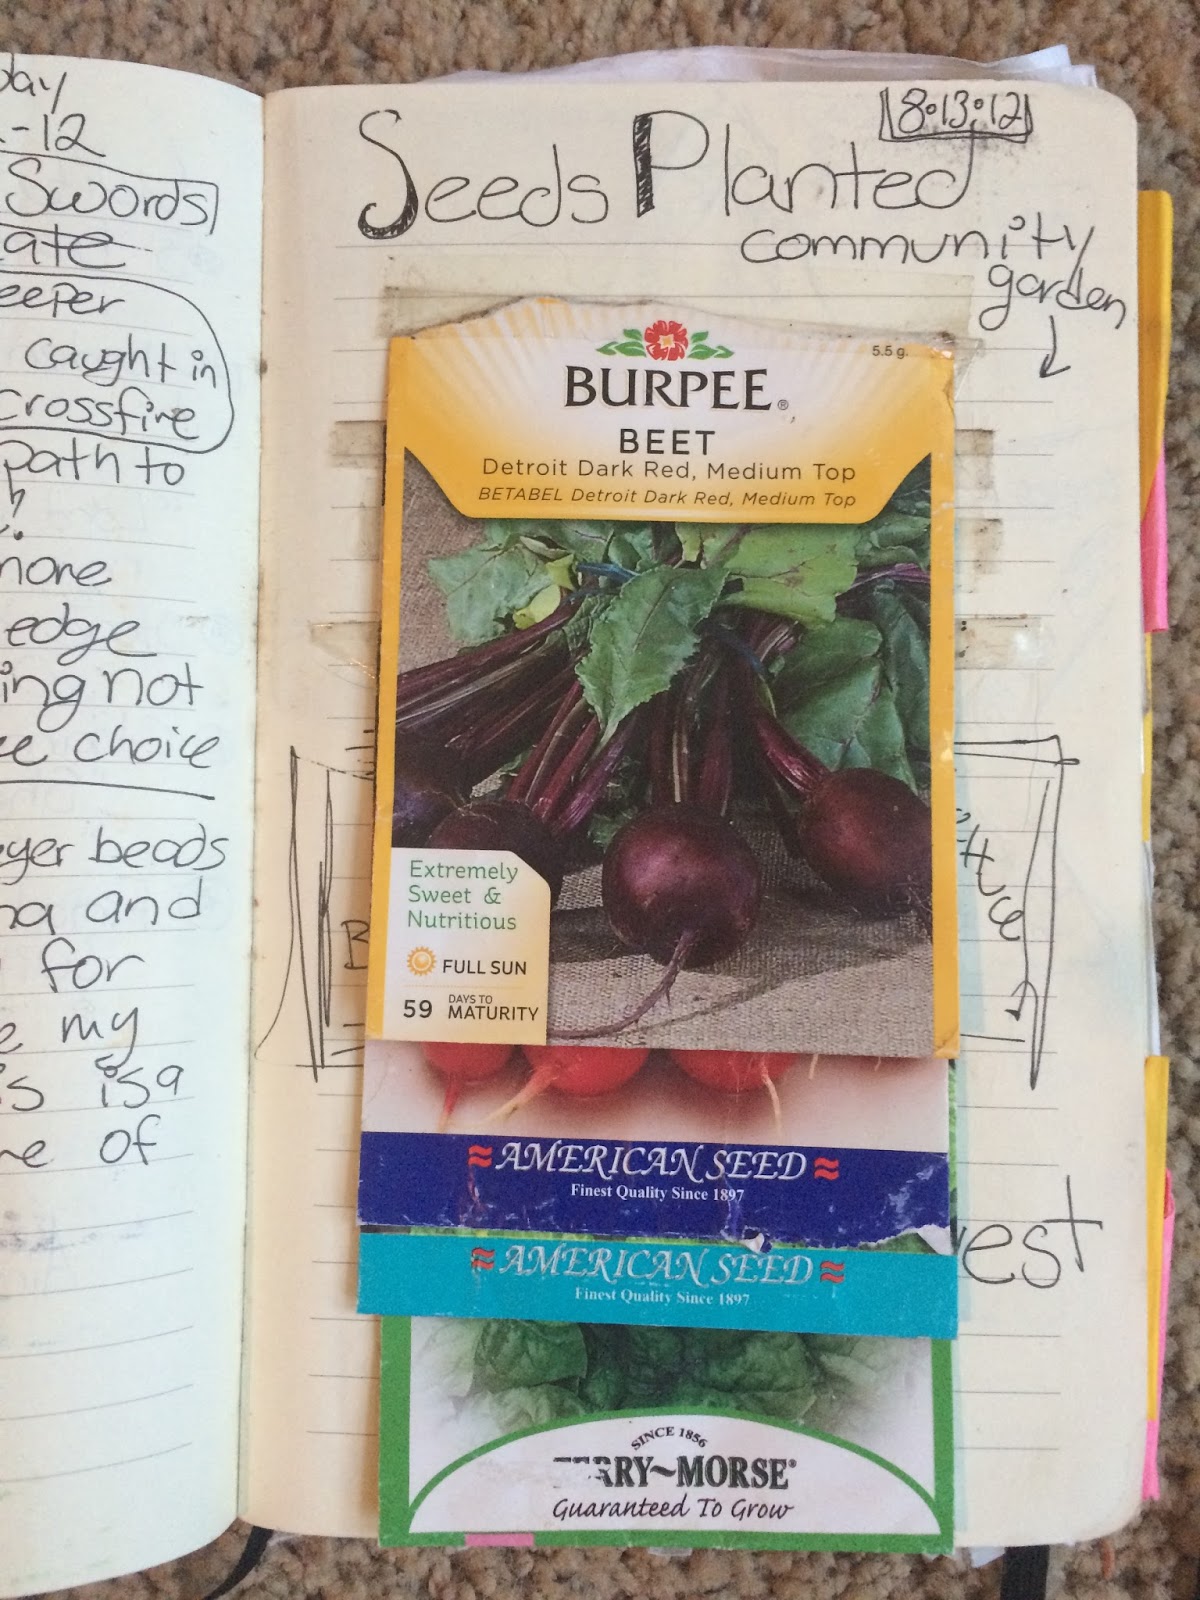 -12
Swords
caught in
crossfire
path to
edge
not
choice
beads
and
for
my
is a
of
8·13·12
Seeds Planted
community
garden
5.5 g.
BURPEE®
BEET
Detroit Dark Red, Medium Top
BETABEL Detroit Dark Red, Medium Top
Extremely
Sweet &
Nutritious
FULL SUN
59 DAYS TO MATURITY
B
AMERICAN SEED
Finest Quality Since 1897
AMERICAN SEED
Finest Quality Since 1897
SINCE 1856
RY~MORSE®
Guaranteed To Grow